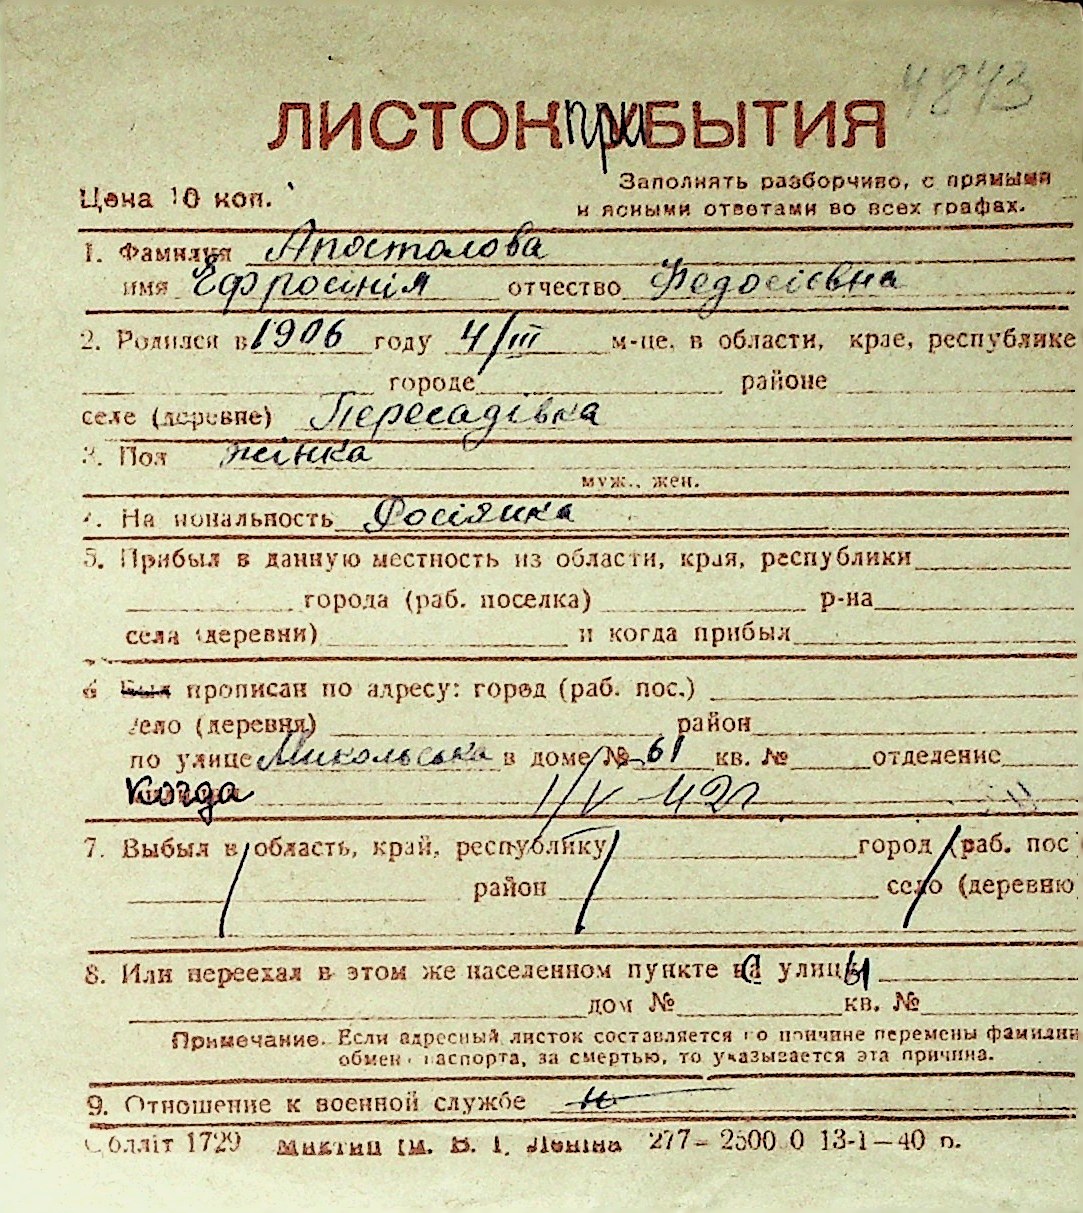 4843
ЛИСТОК ПриБЫТИЯ
Цена 10 коп.
Заполнять разборчиво, с прямыми
и ясными ответами во всех графах.
1. Фамилия Апостолова
имя Ефросінія отчество Федосієвна
2. Родился в 1906 году 4/III м-це, в области, крае, республике
городе районе
селе (деревне) Пересадівка
3. Пол жінка
муж., жен.
4. Национальность Росіянка
5. Прибыл в данную местность из области, края, республики
города (раб. поселка) р-на
села (деревни) и когда прибыл
6 Был прописан по адресу: город (раб. пос.)
село (деревня) район
по улице Микольська в доме № 61 кв. № отделение
Когда 1/V-42г
7. Выбыл в область, край, республику город (раб. пос
район село (деревню
8. Или переехал в этом же населенном пункте са улицы
дом № кв. №
Примечание. Если адресный листок составляется по причине перемены фамилии
обмен паспорта, за смертью, то указывается эта причина.
9. Отношение к военной службе
Облліт 1729 Миктип ім. В. І. Леніна 277–2500 0 13-1–40 р.